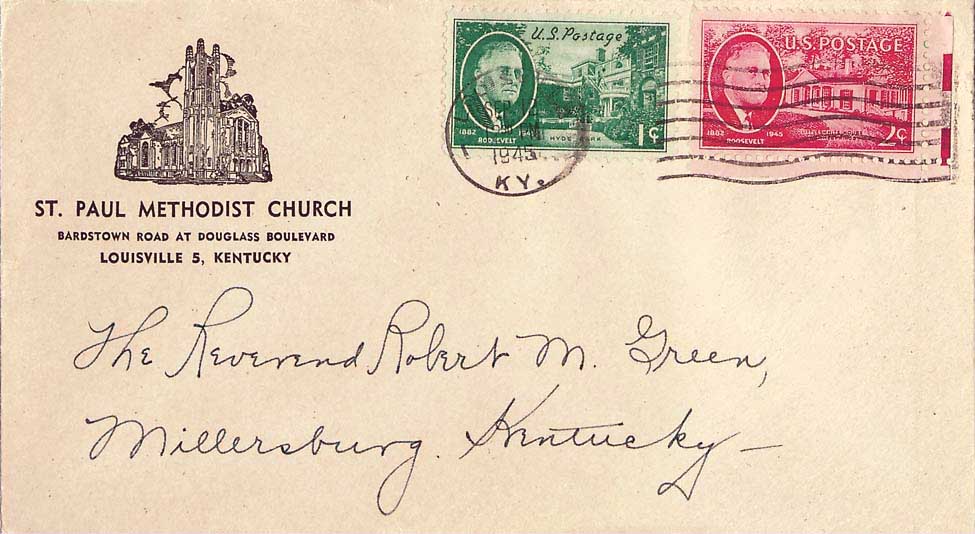 U.S. Postage
1882 1945
ROOSEVELT HYDE PARK
1¢
U.S. POSTAGE
1882 1945
ROOSEVELT
2¢
SEP
1945
KY.
ST. PAUL METHODIST CHURCH
BARDSTOWN ROAD AT DOUGLASS BOULEVARD
LOUISVILLE 5, KENTUCKY
The Reverend Robert M. Green,
Millersburg. Kentucky —